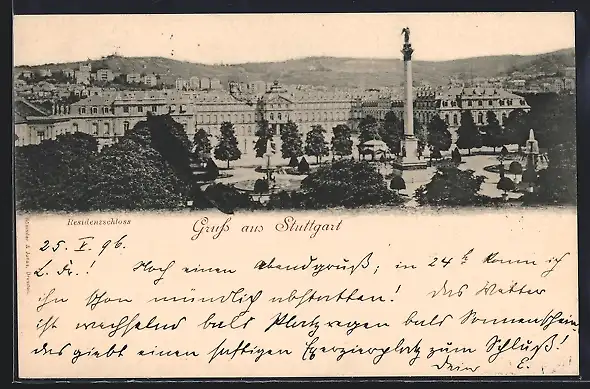 Residenzschloss
Gruß aus Stuttgart
25. V. 96.
L. Fr.! Noch einen Abendgruß; in 24 h kann ich
ihn schon mündlich abstatten! das Wetter
ist wechselnd bald Platzregen bald Sonnenschein,
das giebt einen saftigen Exerzierplatz zum Schluß!
Dein E.